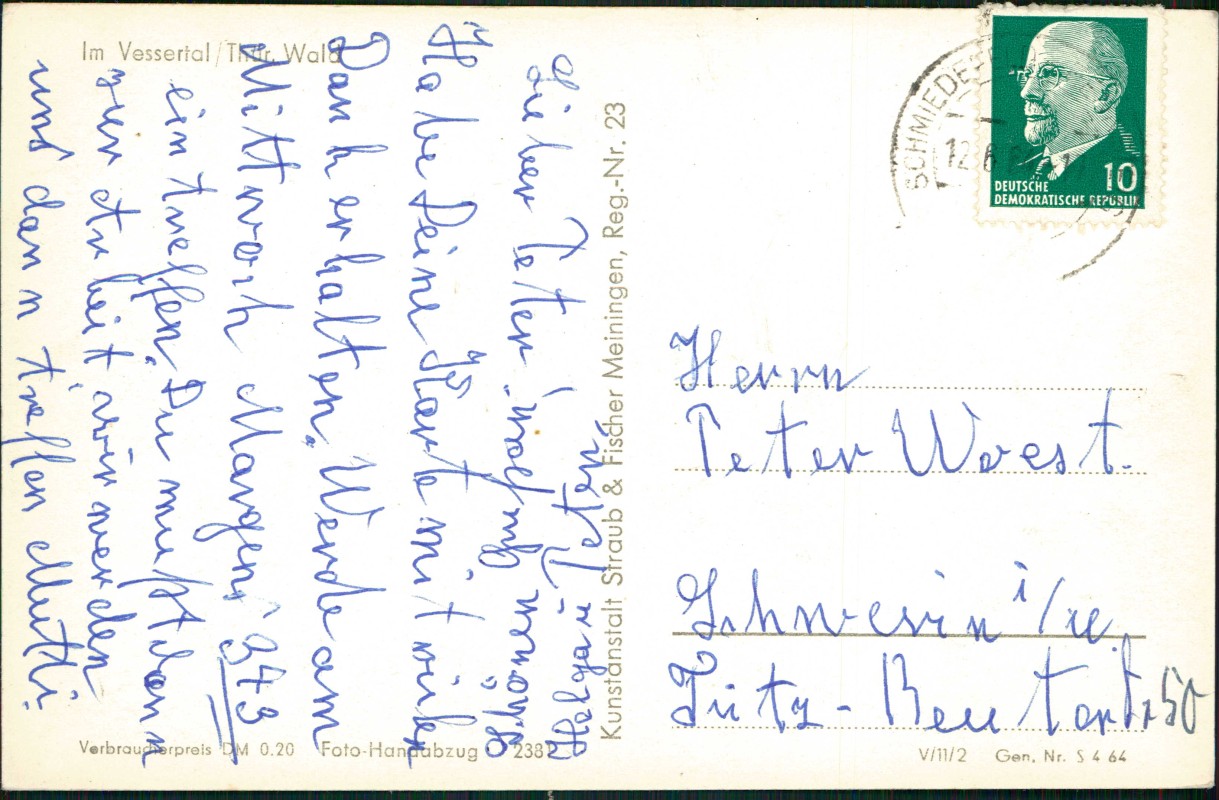 Im Vessertal/Thür. Wald
Lieber Peter
Habe Deine Karte mit vielen
Dank erhalten. Werde am
Mittwoch Morgen 343
ein treffen. Du mußt dann
zur Arbeit wir werden
uns dann treffen Mutti
Helga u Peter
Kunstanstalt Straub & Fischer Meiningen, Reg.-Nr. 23
Verbraucherpreis DM 0.20 Foto-Handabzug 238
SCHMIEDEFE
12.6.6
10
DEUTSCHE
DEMOKRATISCHE REPUBLIK
Herrn
Peter Woest.
Schwerin i/M.
Fritz-Reuterstr 50
V/11/2 Gen. Nr. S 4 64